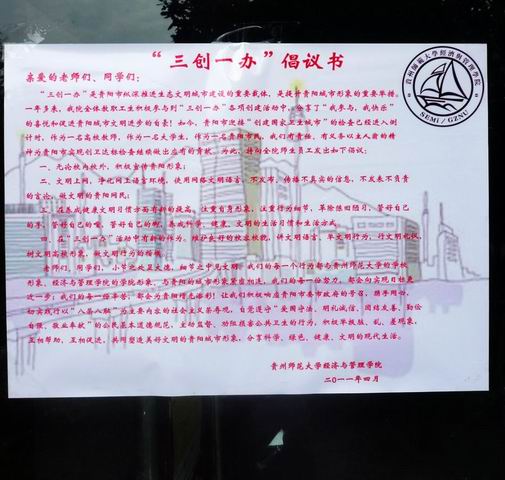 “三创一办”倡议书
贵州师范大学经济与管理学院
SEMI/GZNU
亲爱的老师们、同学们：
“三创一办”是贵阳市纵深推进生态文明城市建设的重要载体，是提升贵阳城市形象的重要举措。
一年多来，我院全体教职卫生积极参与到“三创一办”各项创建活动中，分享了“我参与，我快乐”
的喜悦和促进贵阳城市文明进步的自豪！如今，贵阳市迎接“创建国家卫生城市”的检查已经进入倒
计时，作为一名高校教师，作为一名大学生，作为一名贵阳市民，我们有责任，有义务以主人翁的精
神为贵阳市实现创卫达标检查继续做出应有的贡献。为此，特向全院师生员工发出如下倡议：
一、无论校内校外，积极宣传贵阳形象；
二、文明上网，净化网上语言环境，使用网络文明语言，不发布、传播不真实的信息，不发表不负责
的言论，做文明的贵阳网民；
三、在养成健康文明习惯方面有新的提高，注重自身形象，注重行为细节，革除陈旧陋习，管好自己
的手，管好自己的嘴，管好自己的脚，养成科学、健康、文明的生活习惯和生活方式。
四、在“三创一办”活动中有新的作为，维护良好的校容校貌，讲文明语言，举文明行为，行文明礼仪，
树文明高校形象，做文明行为的楷模。
老师们，同学们，小节之处显大德，细节之中见文明，我们的每一个行为都与贵州师范大学的学校
形象、经济与管理学院的学院形象，与贵阳的城市形象紧密相连，我们的每一份努力，都会向实现目标更
进一步；我们的每一份辛苦，都会为贵阳增光添彩！让我们积极响应贵阳市委市政府的号召，携手同心，
切实践行以“八荣八耻”为主要内容的社会主义荣辱观，自觉遵守“爱国守法、明礼诚信、团结友善、勤俭
自强、敬业奉献”的公民基本道德规范，主动监督、劝阻危害公共卫生的行为，积极举报脏、乱、差现象，
互相帮助，互相促进，共同塑造美好文明的贵阳城市形象，分享科学、绿色、健康、文明的现代生活。
贵州师范大学经济与管理学院
二〇一一年四月